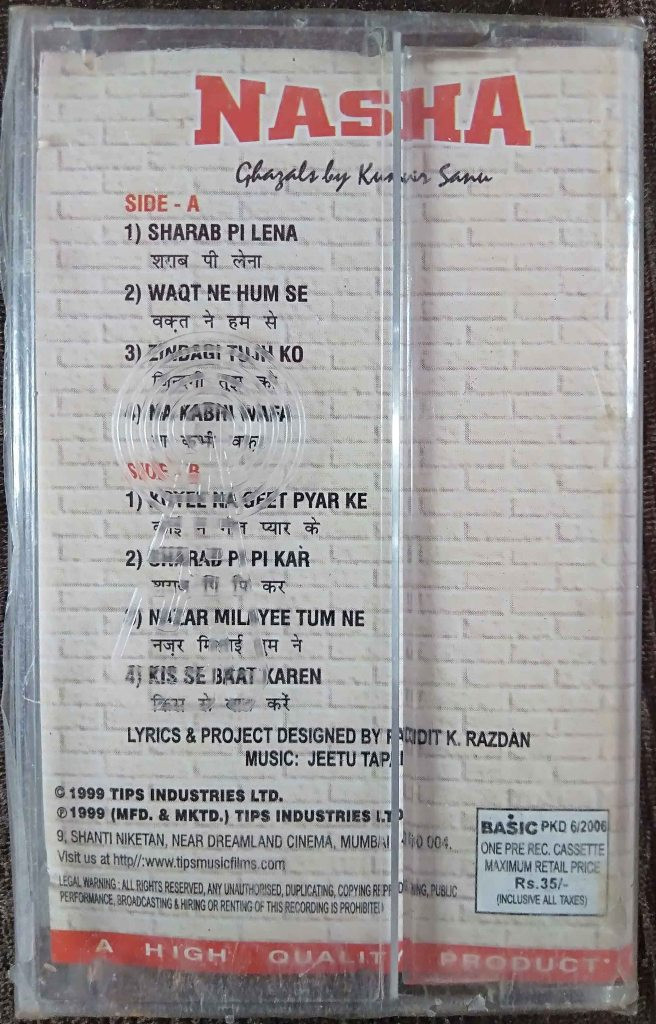 NASHA
Ghazals by Kumar Sanu
SIDE - A
1) SHARAB PI LENA
शराब पी लेना
2) WAQT NE HUM SE
वक़्त ने हम से
3) ZINDAGI TUJH KO
ज़िन्दगी तुझ को
4) NA KABHI
ना कभी
SIDE - B
1) KOYEE NA GEET PYAR KE
कोई न गीत प्यार के
2) SHARAB PI PI KAR
शराब पि पि कर
3) NAZAR MILAYEE TUM NE
नज़र मिलाई तुम ने
4) KIS SE BAAT KAREN
किस से बात करें
LYRICS & PROJECT DESIGNED BY K. RAZDAN
MUSIC: JEETU
© 1999 TIPS INDUSTRIES LTD.
℗ 1999 (MFD. & MKTD.) TIPS INDUSTRIES LTD
9, SHANTI NIKETAN, NEAR DREAMLAND CINEMA, MUMBAI 400 004.
Visit us at http//:www.tipsmusicfilms.com
LEGAL WARNING : ALL RIGHTS RESERVED, ANY UNAUTHORISED, DUPLICATING, COPYING REPRODUCING, PUBLIC
PERFORMANCE, BROADCASTING & HIRING OR RENTING OF THIS RECORDING IS PROHIBITED
BASIC PKD 6/2006
ONE PRE REC. CASSETTE
MAXIMUM RETAIL PRICE
Rs.35/-
(INCLUSIVE ALL TAXES)
A HIGH QUALITY PRODUCT